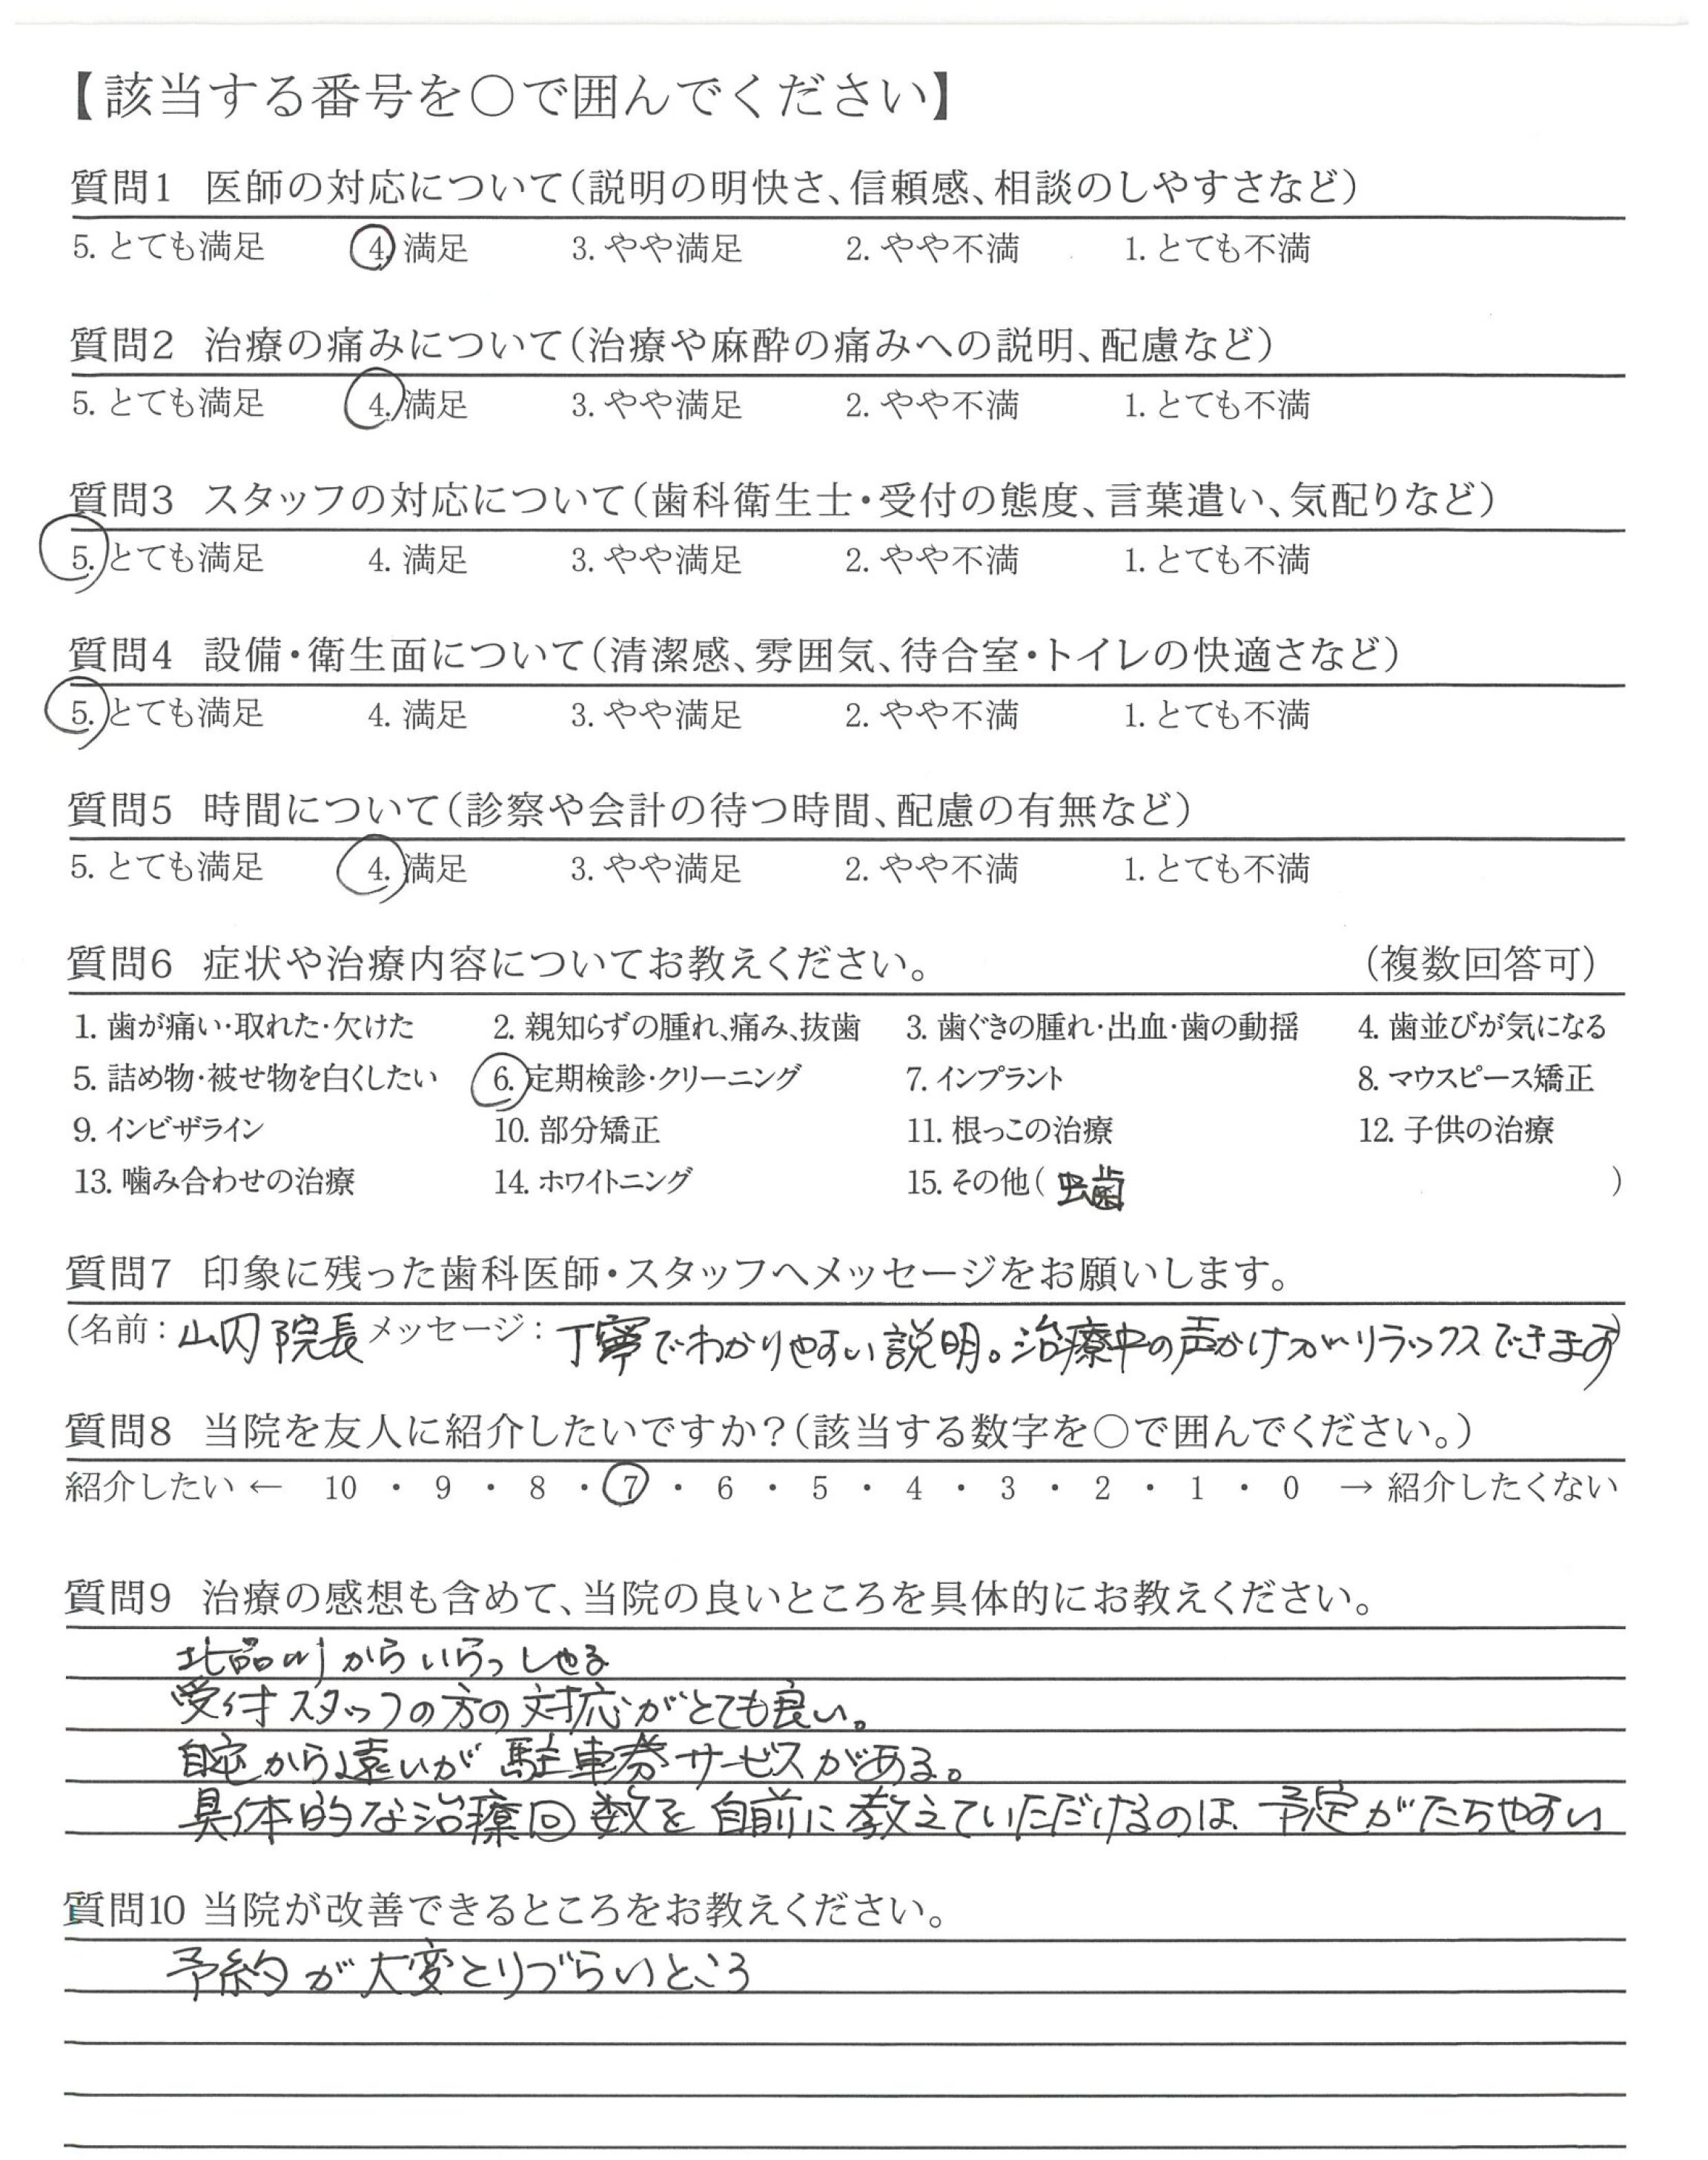 【該当する番号を○で囲んでください】
質問1 医師の対応について(説明の明快さ、信頼感、相談のしやすさなど)
5. とても満足 4. 満足 3. やや満足 2. やや不満 1. とても不満
質問2 治療の痛みについて(治療や麻酔の痛みへの説明、配慮など)
5. とても満足 4. 満足 3. やや満足 2. やや不満 1. とても不満
質問3 スタッフの対応について(歯科衛生士・受付の態度、言葉遣い、気配りなど)
5. とても満足 4. 満足 3. やや満足 2. やや不満 1. とても不満
質問4 設備・衛生面について(清潔感、雰囲気、待合室・トイレの快適さなど)
5. とても満足 4. 満足 3. やや満足 2. やや不満 1. とても不満
質問5 時間について(診察や会計の待つ時間、配慮の有無など)
5. とても満足 4. 満足 3. やや満足 2. やや不満 1. とても不満
質問6 症状や治療内容についてお教えください。 (複数回答可)
1. 歯が痛い・取れた・欠けた 2. 親知らずの腫れ、痛み、抜歯 3. 歯ぐきの腫れ・出血・歯の動揺 4. 歯並びが気になる
5. 詰め物・被せ物を白くしたい 6. 定期検診・クリーニング 7. インプラント 8. マウスピース矯正
9. インビザライン 10. 部分矯正 11. 根っこの治療 12. 子供の治療
13. 噛み合わせの治療 14. ホワイトニング 15. その他( 虫歯 )
質問7 印象に残った歯科医師・スタッフへメッセージをお願いします。
(名前: 院長 メッセージ: 丁寧でわかりやすい説明。治療中の声かけがリラックスできます)
質問8 当院を友人に紹介したいですか?(該当する数字を○で囲んでください。)
紹介したい ← 10 ・ 9 ・ 8 ・ 7 ・ 6 ・ 5 ・ 4 ・ 3 ・ 2 ・ 1 ・ 0 → 紹介したくない
質問9 治療の感想も含めて、当院の良いところを具体的にお教えください。
北品川からいらっしゃる
受付スタッフの方の対応がとても良い。
自宅から遠いが 駐車券サービスがある。
具体的な治療回数を 前に教えていただけるのは、予定がたちやすい
質問10 当院が改善できるところをお教えください。
予約が大変とりづらいところ